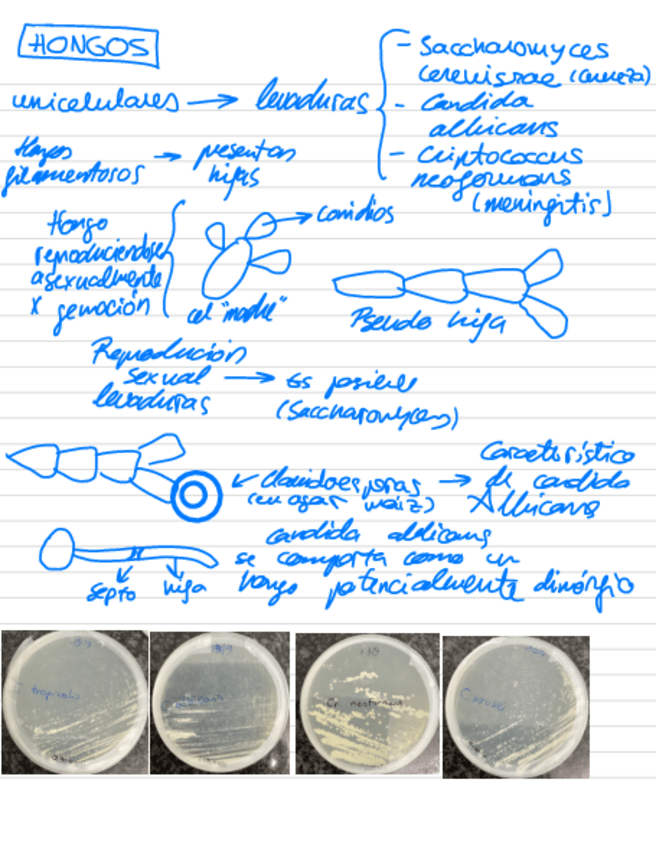 HONGOS
unicelulares → levaduras
- Saccharomyces
cerevisiae (cerveza)
- Candida
albicans
- Criptococcus
neoformans
(meningitis)
Hongos
filamentosos → presentan
hifas
Hongo
reproduciendose
asexualmente
x gemación
→ conidios
cel "madre"
Pseudo hifa
Reproducción
sexual → Es posible
levaduras (Saccharomyces)
↙ Clamidoesporas → Característico
(en agar maiz) de candida
Albicans
candida albicans
se comporta como un
hongo potencialmente dimórfico
septo hifa
C tropicalis
C albicans
Cr neoformans
C krusei